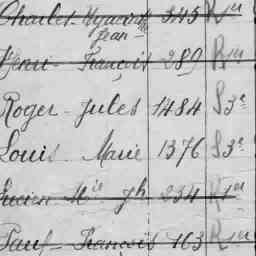 Charles Hyacinthe 345 R 1er
Jean
Henri François 289 R 1er
Roger Jules 1484 S 3e
Louis Marie 1376 S 3e
Lucien Mie Jh 234 R 1er
Paul François 163 R 1er